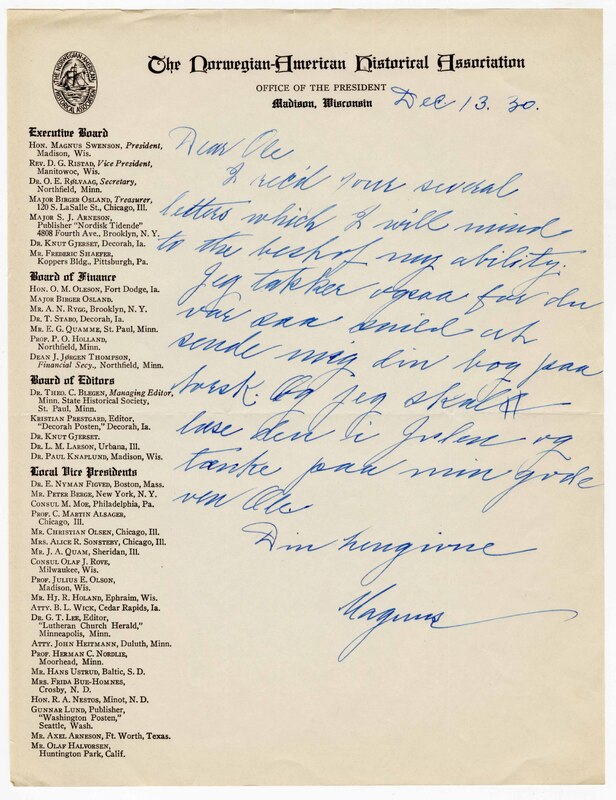 THE NORWEGIAN-AMERICAN HISTORICAL ASSOCIATION
The Norwegian-American Historical Association
OFFICE OF THE PRESIDENT
Madison, Wisconsin
Dec 13. 30.
Executive Board
HON. MAGNUS SWENSON, President,
Madison, Wis.
REV. D. G. RISTAD, Vice President,
Manitowoc, Wis.
DR. O. E. RØLVAAG, Secretary,
Northfield, Minn.
MAJOR BIRGER OSLAND, Treasurer,
120 S. LaSalle St., Chicago, Ill.
MAJOR S. J. ARNESON,
Publisher "Nordisk Tidende"
4808 Fourth Ave., Brooklyn, N. Y.
DR. KNUT GJERSET, Decorah, Ia.
MR. FREDERIC SHAEFER,
Koppers Bldg., Pittsburgh, Pa.
Board of Finance
HON. O. M. OLESON, Fort Dodge, Ia.
MAJOR BIRGER OSLAND.
MR. A. N. RYGG, Brooklyn, N. Y.
DR. T. STABO, Decorah, Ia.
MR. E. G. QUAMME, St. Paul, Minn.
PROF. P. O. HOLLAND,
Northfield, Minn.
DEAN J. JØRGEN THOMPSON,
Financial Secy., Northfield, Minn.
Board of Editors
DR. THEO. C. BLEGEN, Managing Editor,
Minn. State Historical Society,
St. Paul, Minn.
KRISTIAN PRESTGARD, Editor,
"Decorah Posten," Decorah, Ia.
DR. KNUT GJERSET.
DR. L. M. LARSON, Urbana, Ill.
DR. PAUL KNAPLUND, Madison, Wis.
Local Vice Presidents
DR. E. NYMAN FIGVED, Boston, Mass.
MR. PETER BERGE, New York, N. Y.
CONSUL M. MOE, Philadelphia, Pa.
PROF. C. MARTIN ALSAGER,
Chicago, Ill.
MR. CHRISTIAN OLSEN, Chicago, Ill.
MRS. ALICE R. SONSTEBY, Chicago, Ill.
MR. J. A. QUAM, Sheridan, Ill.
CONSUL OLAF J. ROVE,
Milwaukee, Wis.
PROF. JULIUS E. OLSON,
Madison, Wis.
MR. HJ. R. HOLAND, Ephraim, Wis.
ATTY. B. L. WICK, Cedar Rapids, Ia.
DR. G. T. LEE, Editor,
"Lutheran Church Herald,"
Minneapolis, Minn.
ATTY. JOHN HEITMANN, Duluth, Minn.
PROF. HERMAN C. NORDLIE,
Moorhead, Minn.
MR. HANS USTRUD, Baltic, S. D.
MRS. FRIDA BUE-HOMNES,
Crosby, N. D.
HON. R. A. NESTOS, Minot, N. D.
GUNNAR LUND, Publisher,
"Washington Posten,"
Seattle, Wash.
MR. AXEL ARNESON, Ft. Worth, Texas.
MR. OLAF HALVORSEN,
Huntington Park, Calif.
Dear Ole
I rec'd your several
letters which I will mind
to the best of my ability.
Jeg takker ogsaa for du
var saa snild at
sende mig din bog paa
norsk. Og jeg skal
læse den i Julen og
tænke paa min gode
ven Ole.
Din hengivne
Magnus